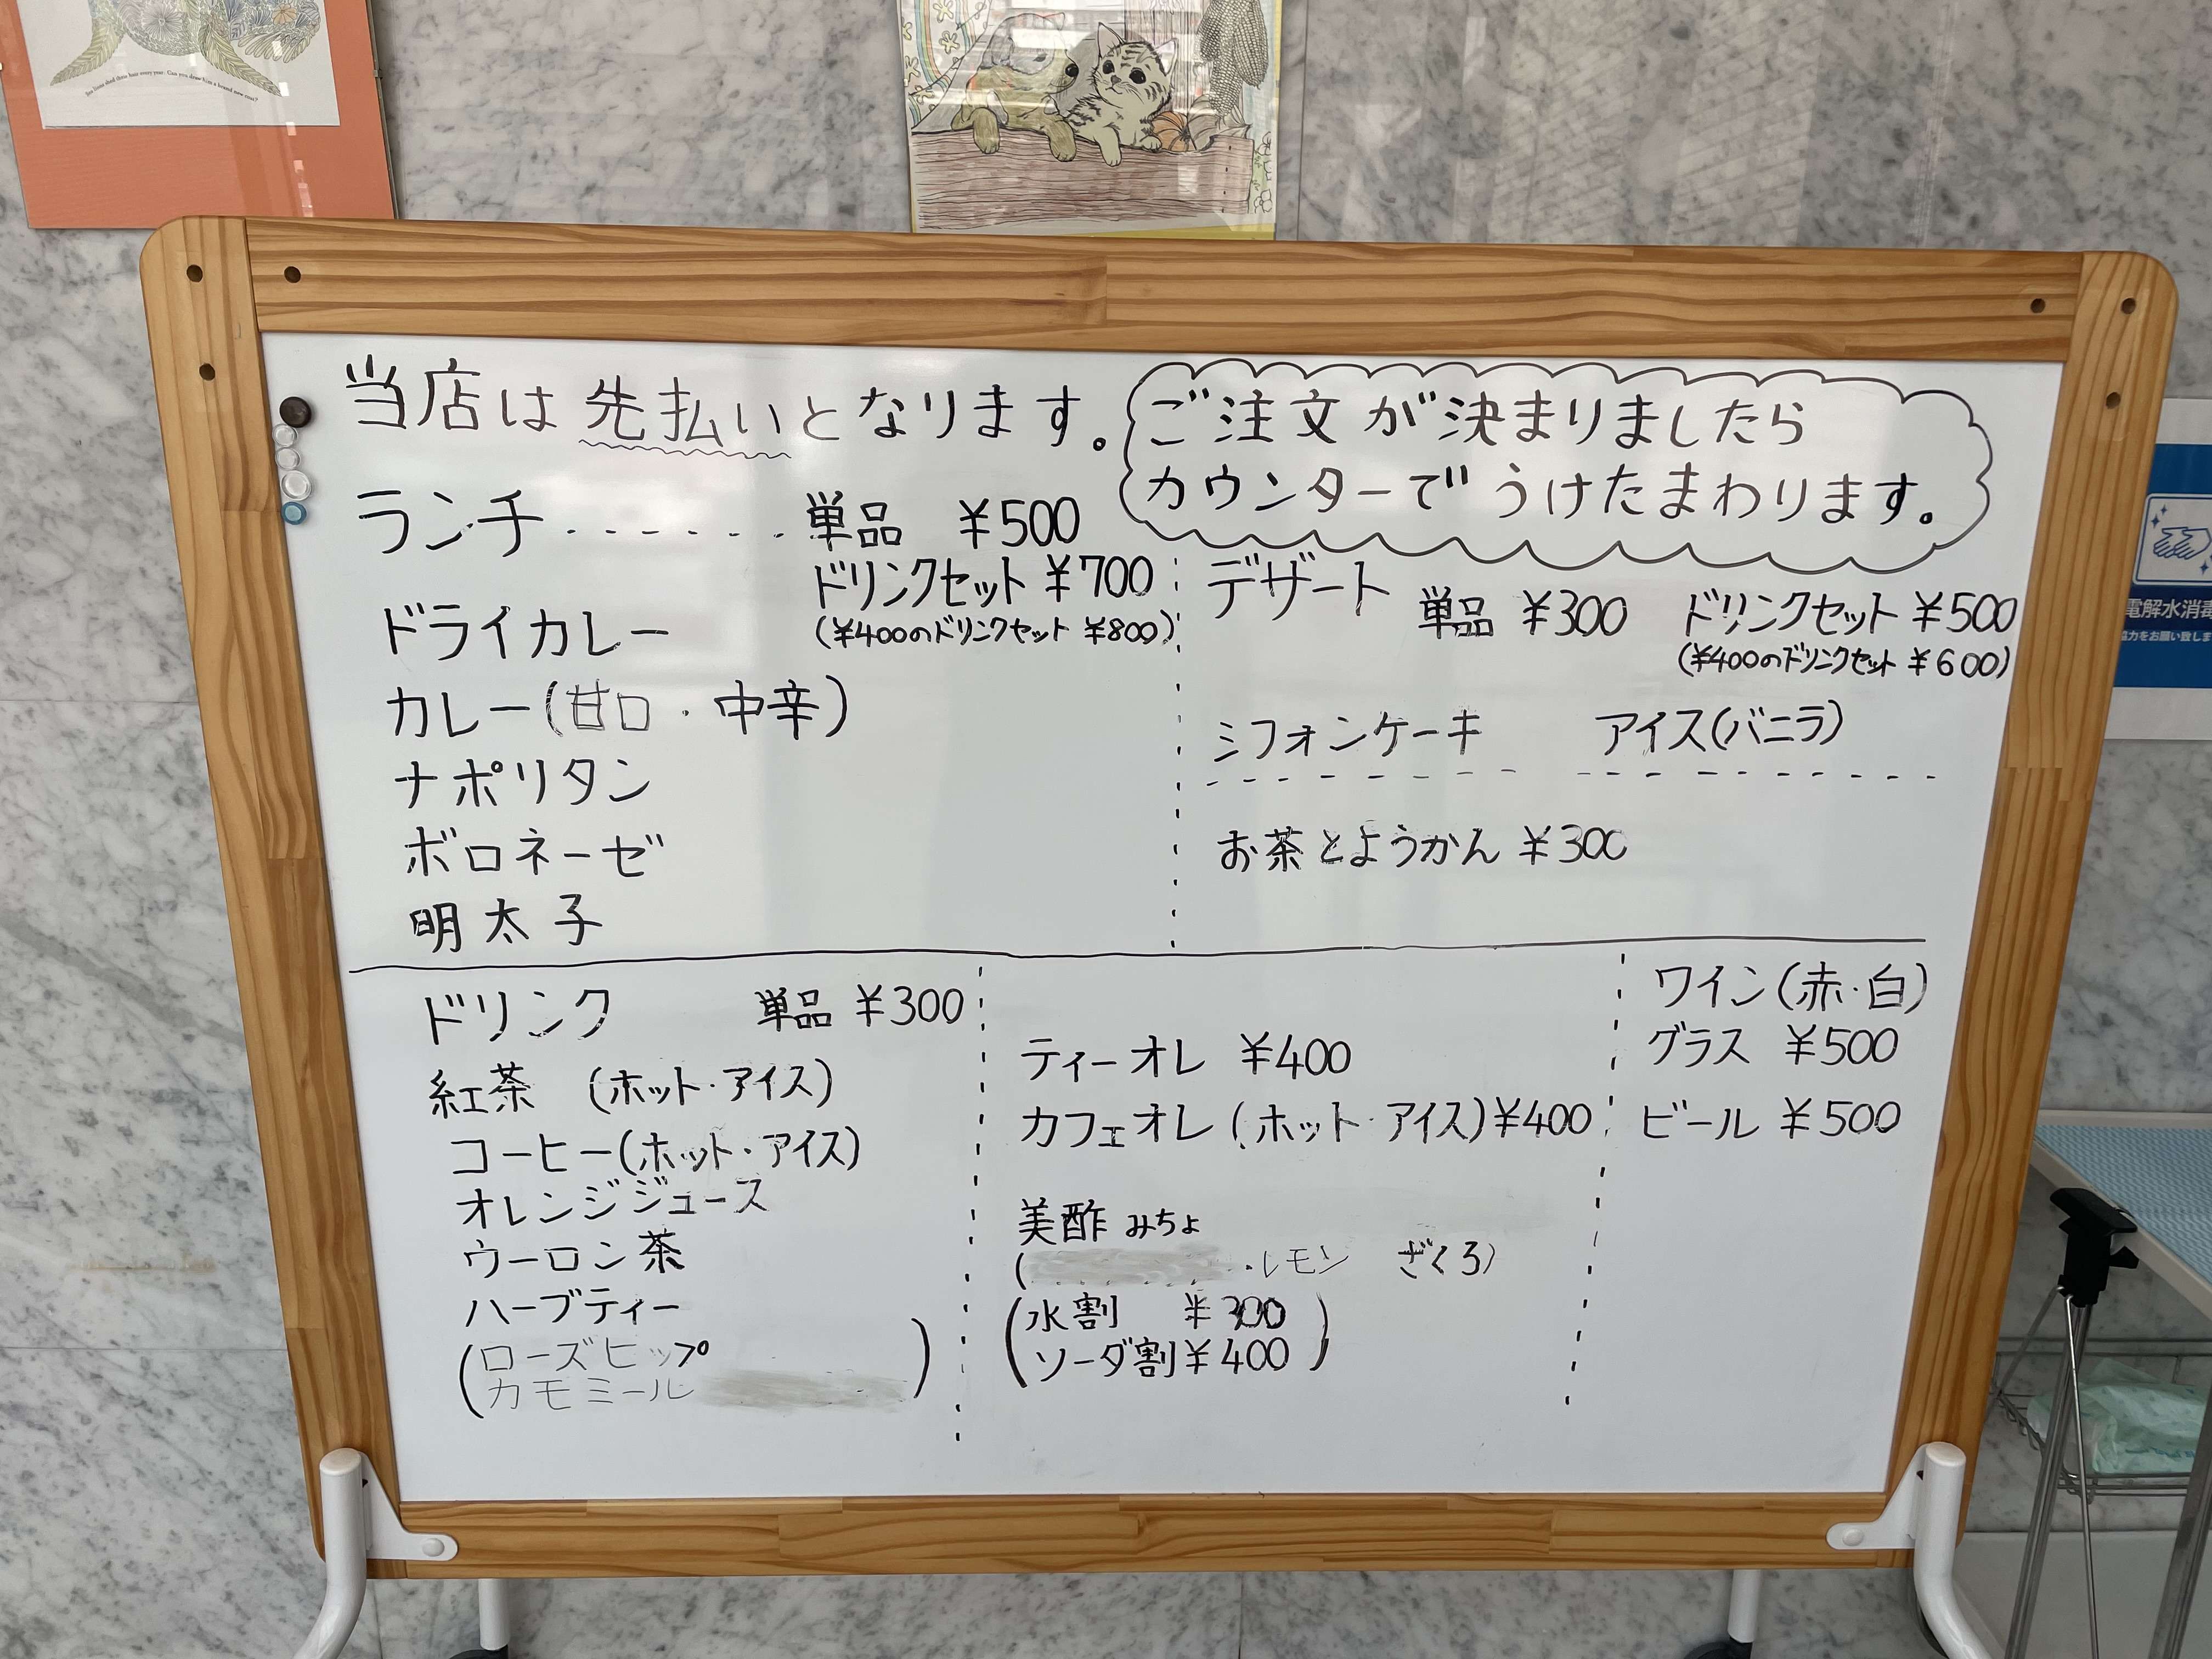 当店は先払いとなります。
ご注文が決まりましたら
カウンターでうけたまわります。
ランチ・・・・・・・単品 ¥500
ドリンクセット ¥700
(¥400のドリンクセット ¥800)
ドライカレー
カレー(甘口・中辛)
ナポリタン
ボロネーゼ
明太子
デザート 単品 ¥300 ドリンクセット ¥500
(¥400のドリンクセット ¥600)
シフォンケーキ アイス(バニラ)
お茶とようかん ¥300
ドリンク 単品 ¥300
紅茶 (ホット・アイス)
コーヒー(ホット・アイス)
オレンジジュース
ウーロン茶
ハーブティー
(ローズヒップ
カモミール )
ティーオレ ¥400
カフェオレ(ホット・アイス)¥400
美酢 みちょ
( ・レモン ざくろ)
(水割 ¥300
ソーダ割 ¥400)
ワイン(赤・白)
グラス ¥500
ビール ¥500
電解水消毒
協力をお願い致しま